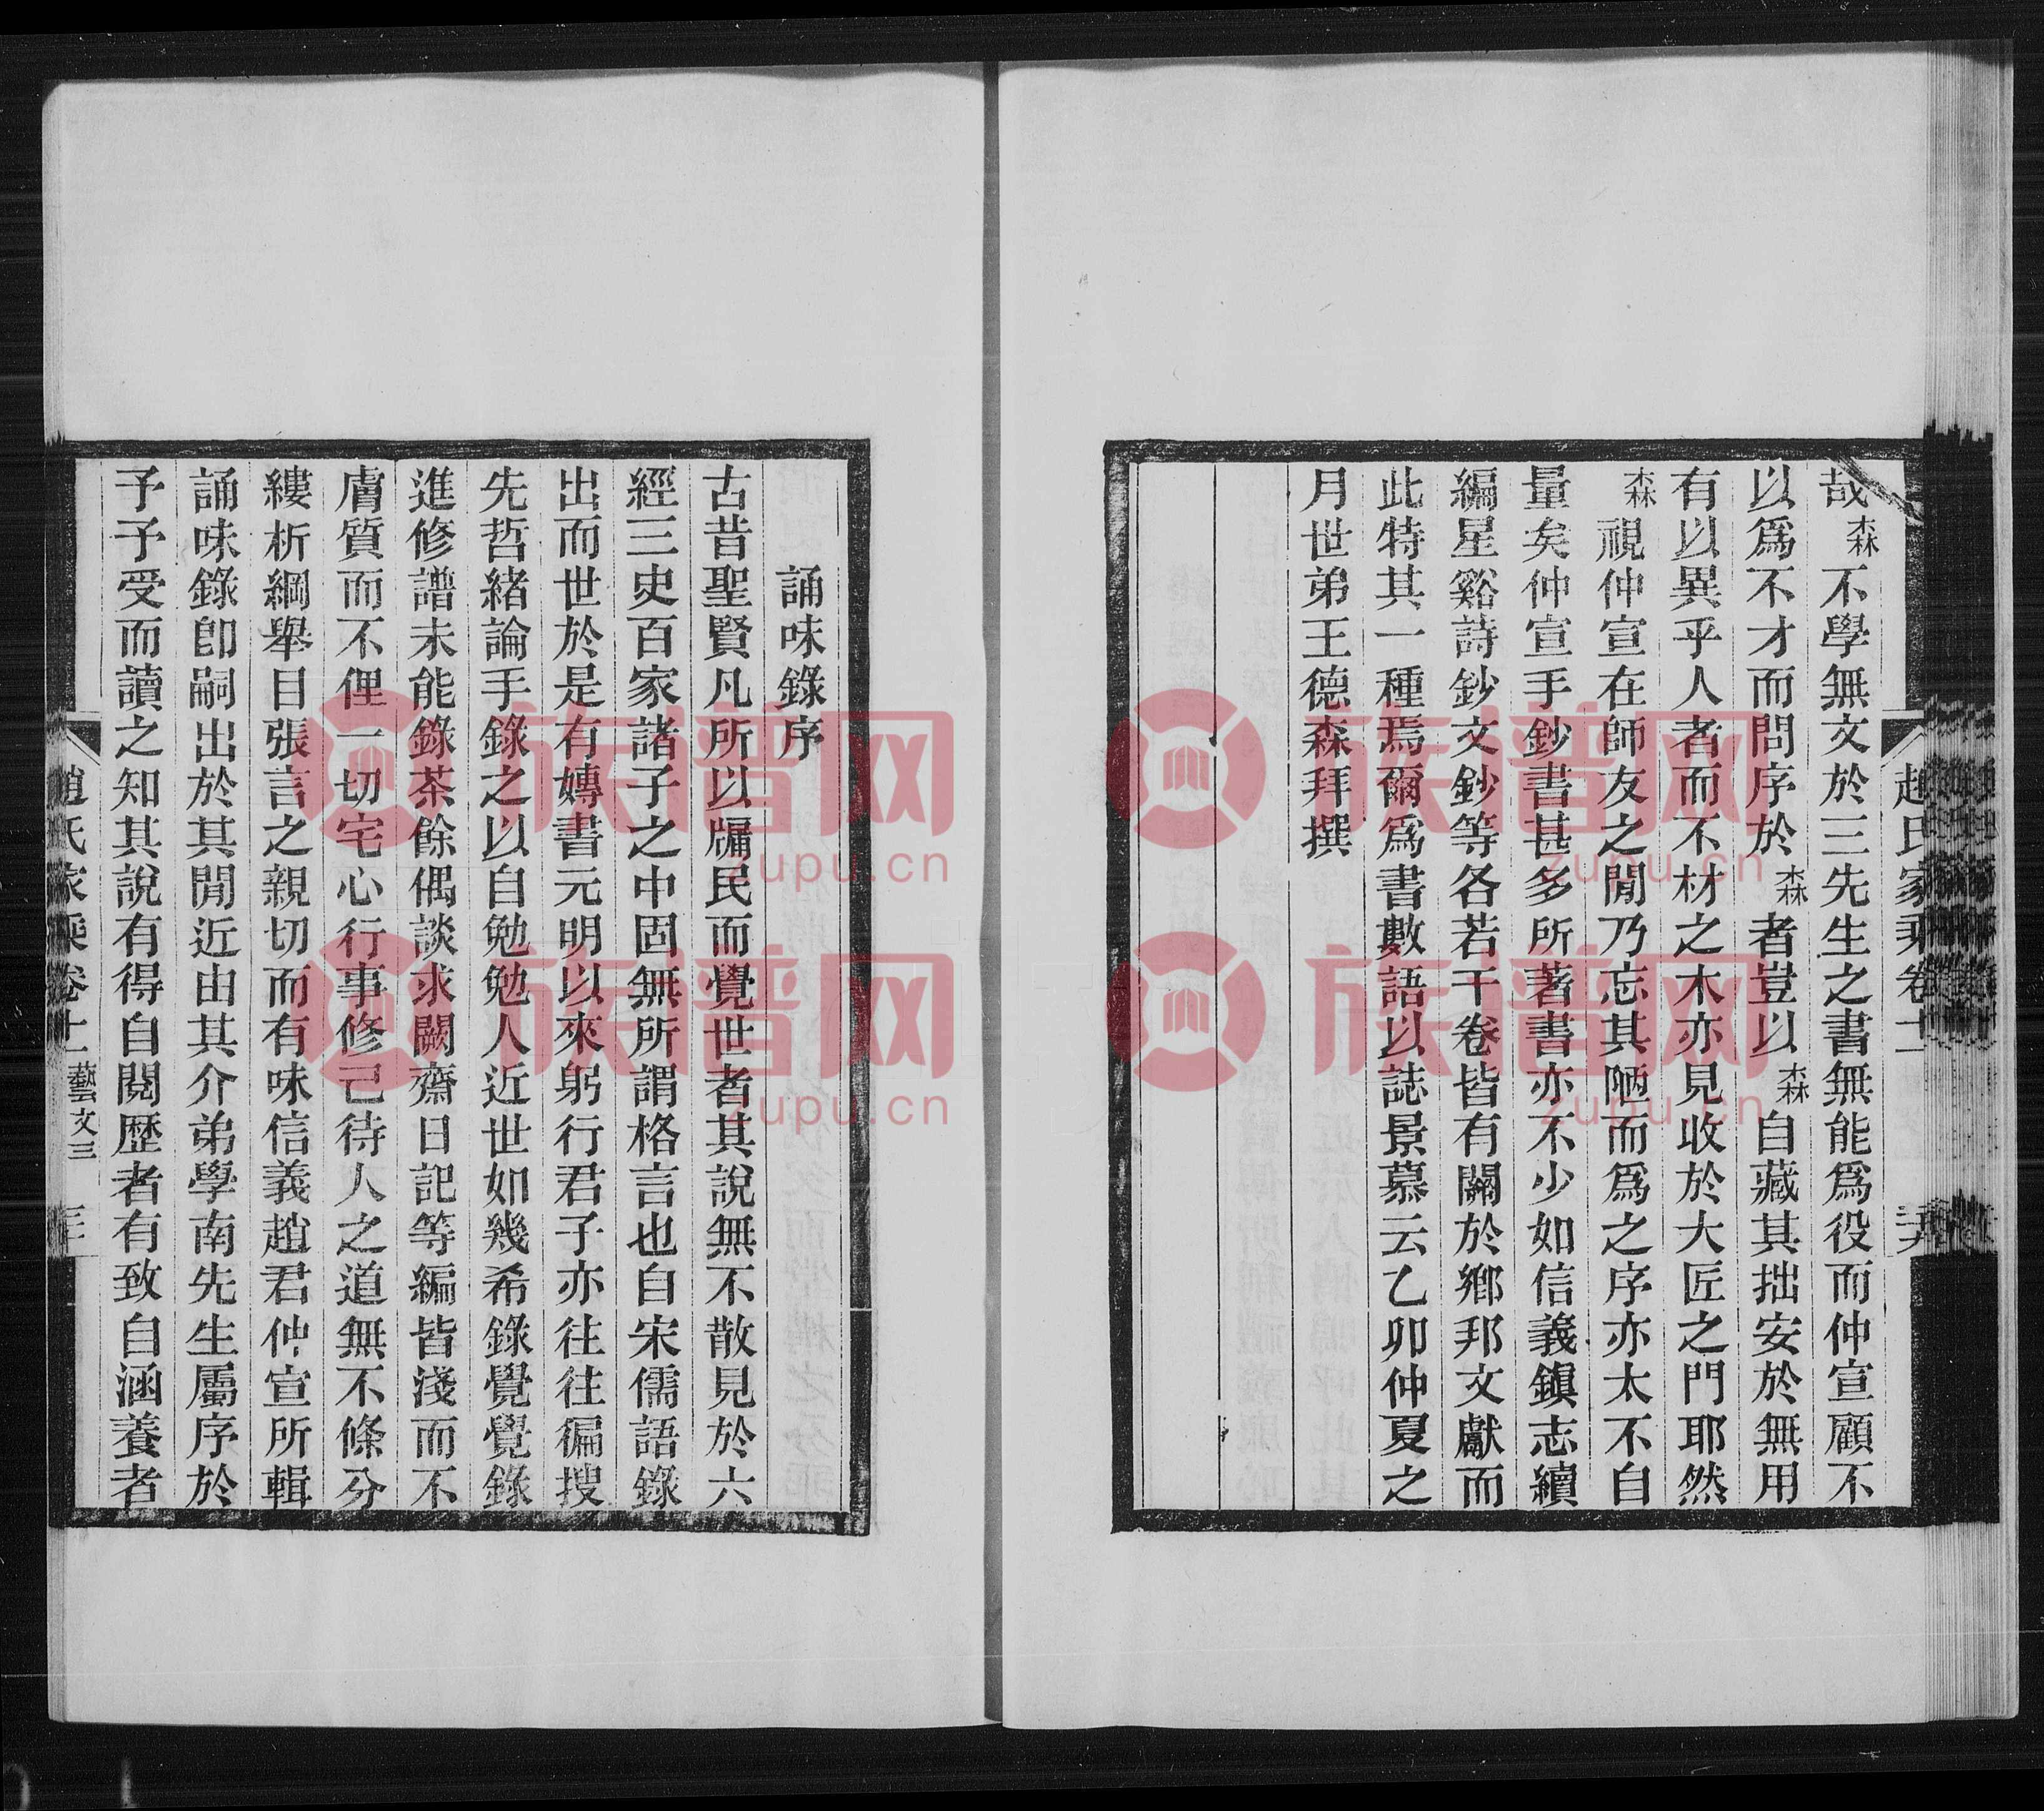 趙氏家乘卷十一
哉森不學無文於三先生之書無能爲役而仲宣顧不
以爲不才而問序於森者豈以森自藏其拙安於無用
有以異乎人者而不材之木亦見收於大匠之門耶然
森視仲宣在師友之閒乃忘其陋而爲之序亦太不自
量矣仲宣手鈔書甚多所著書亦不少如信義鎭志續
編星谿詩鈔文鈔等各若干卷皆有關於鄉邦文獻而
此特其一種焉爾爲書數語以誌景慕云乙卯仲夏之
月世弟王德森拜撰
誦味錄序
古昔聖賢凡所以牖民而覺世者其說無不散見於六
經三史百家諸子之中固無所謂格言也自宋儒語錄
出而世於是有嫥書元明以來躬行君子亦往往徧搜
先哲緒論手錄之以自勉勉人近世如幾希錄覺覺錄
進修譜未能錄茶餘偶談求闕齋日記等編皆淺而不
膚質而不俚一切宅心行事修己待人之道無不條分
縷析綱舉目張言之親切而有味信義趙君仲宣所輯
誦味錄卽嗣出於其閒近由其介弟學南先生屬序於
予予受而讀之知其說有得自閱歷者有致自涵養者
趙氏家乘卷十一 藝文三 三十
族普网
zupu.cn
族普网
zupu.cn
族普网
zupu.cn
族普网
zupu.cn